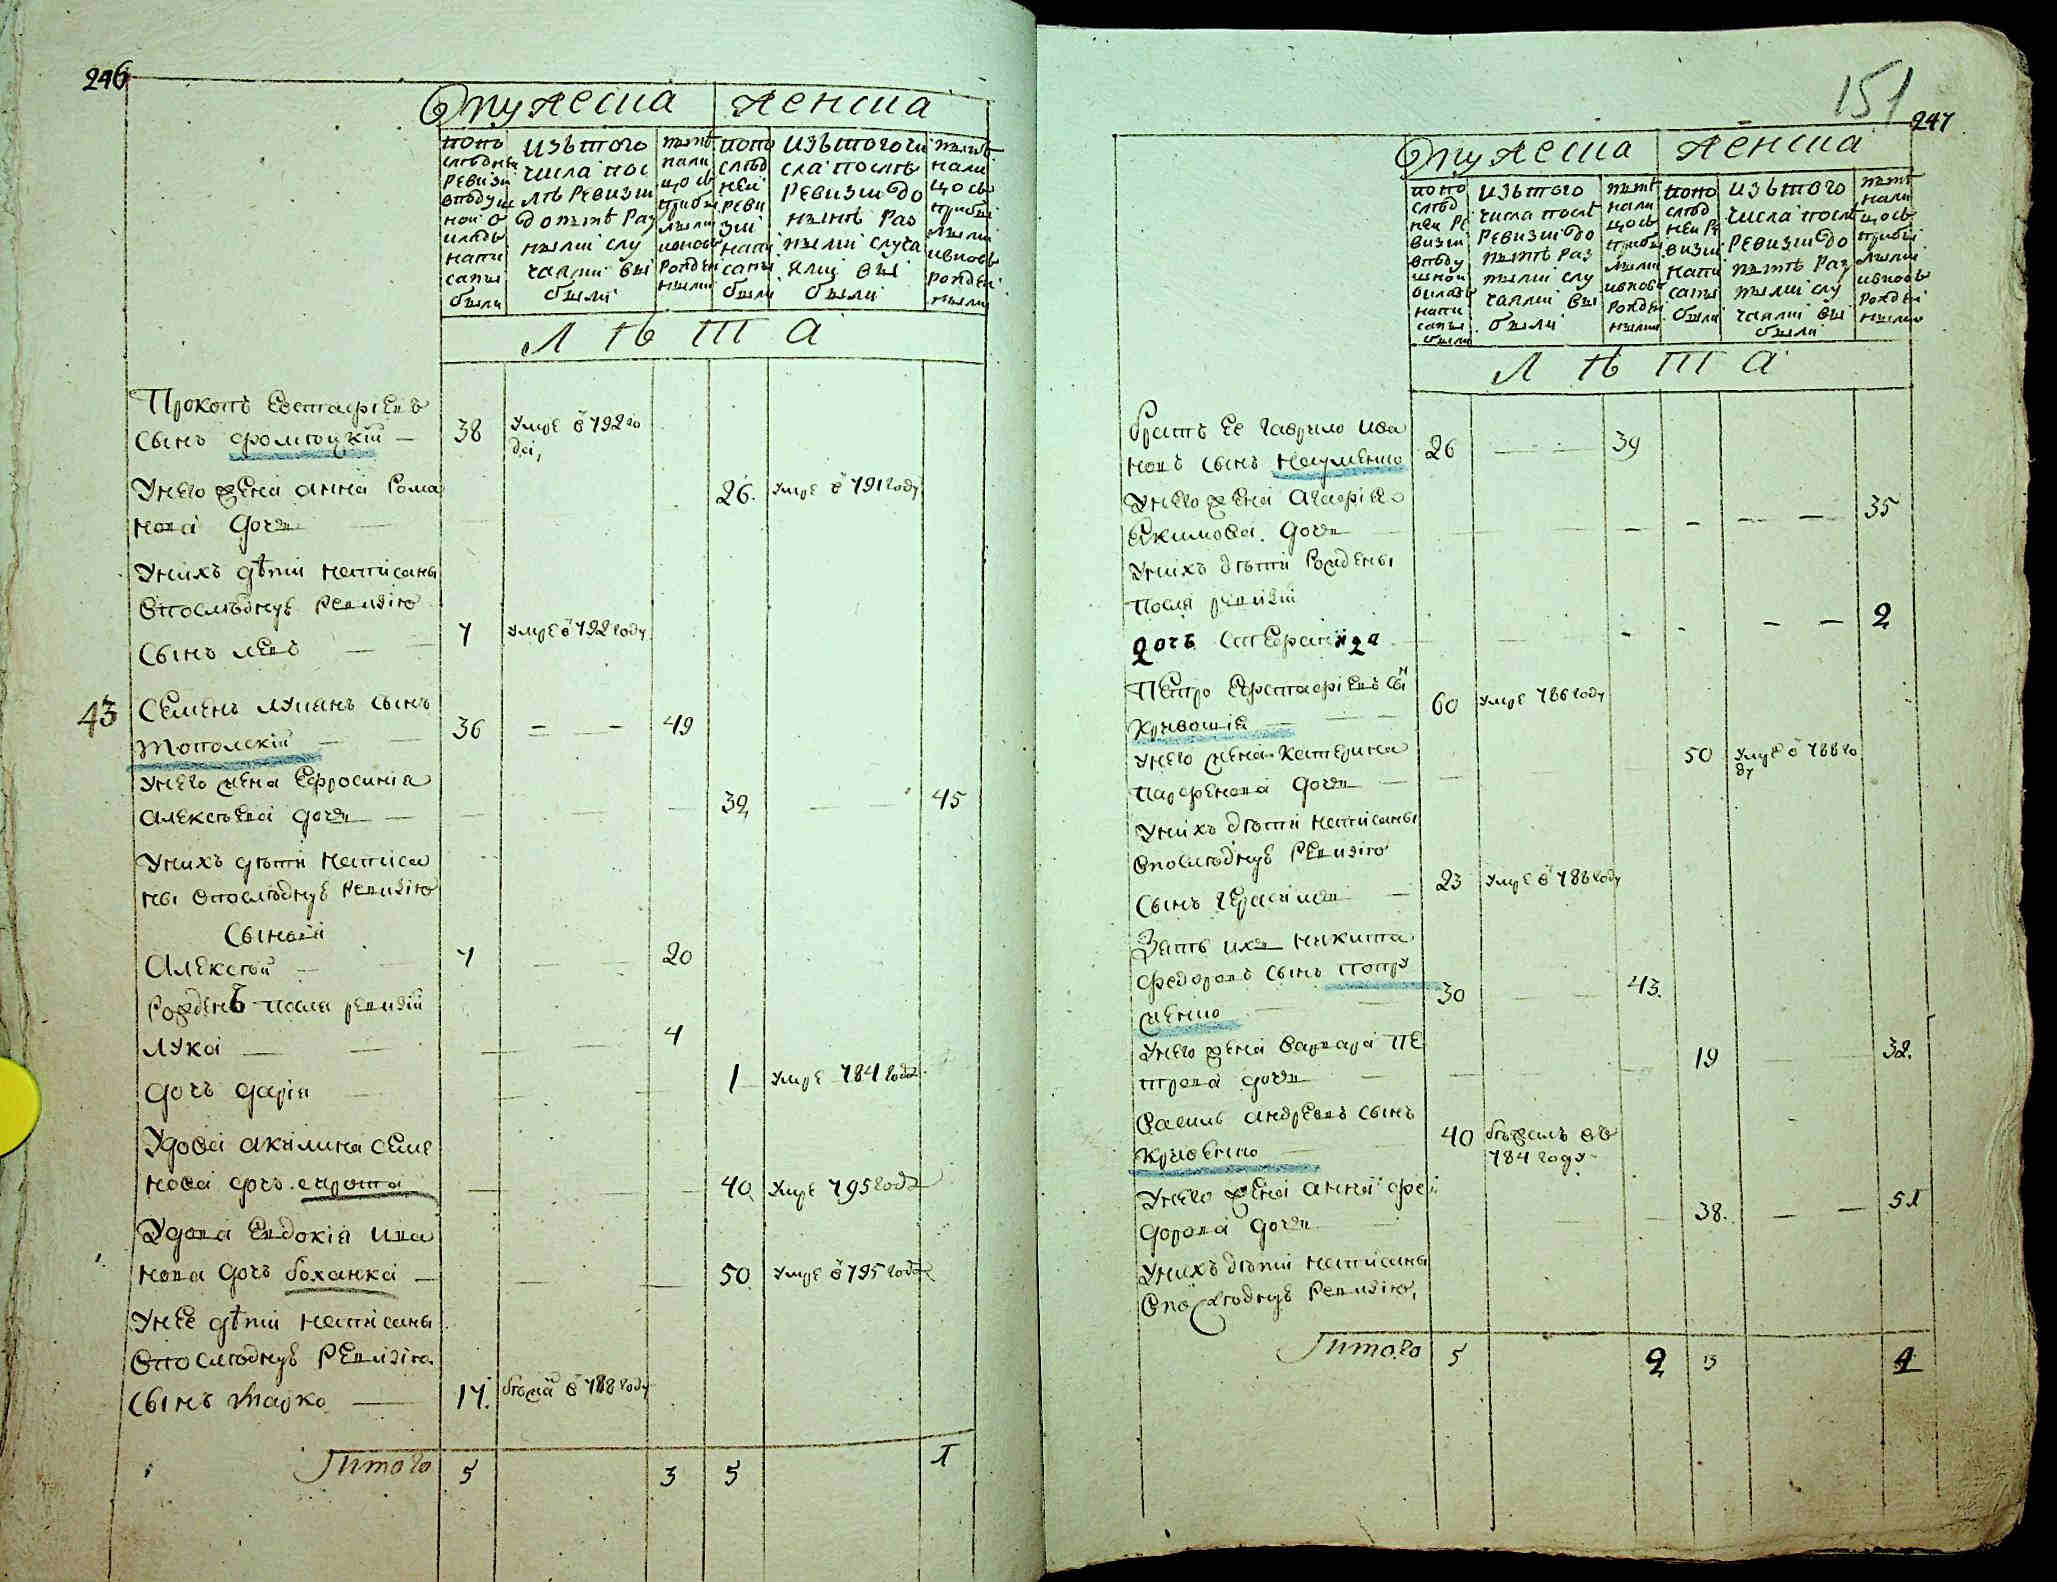 246
О мужеска женска
попо следней ревизи вподушной окладъ написаны были
изътого числа после ревизии до ныне разными случаями выбыли
ныне налицо съ прибылыми ивновь рожденными
попо следней ревизии написаны были
изътого числа после ревизии до ныне разными случаями выбыли
ныне налицо съ прибылыми ивновь рожденными
ЛѢТА
Прокопъ Евстафиевъ
сынъ 38 умре в 792 го
да,
Унего жена анна Рома
нова дочь 26. умре в 791 году
Унихъ дѣти написаны
впоследнуе ревизию
Сынъ левъ 7 умре в 792 году
43 Семенъ лукянъ сынъ
Тополскии 36 49
Унего жена Ефросиниа
алексѣева дочь 39 45
Унихъ дѣти написа
ны впоследнуе ревизию
Сыновя
Алексѣй 7 20
Рожденъ после ревизии
Лука 4
дочъ дария 1 умре 784 году
Удова акилина семе
нова дочъ сирота 40 умре 795 году
Удова Евдокия ива
нова дочъ боханка 50 умре в 795 году
Унее дѣти написаны
впоследнуе ревизию
Сынъ Марко 17. бежа в 788 году
Итого 5 3 5 1
151
247
О мужеска женска
попо следней ревизии вподушной окладъ написаны были
изътого числа после ревизии до ныне разными случаями выбыли
ныне налицо съ прибылыми ивновь рожденными
попо следней ревизии написаны были
изътого числа после ревизии до ныне разными случаями выбыли
ныне налицо съ прибылыми ивновь рожденными
ЛѢТА
братъ ее гаврило ива
новъ сынъ Науменко 26 39
Унего жена агафиа
Екимова дочь 35
Унихъ дѣти рождены
после ревизии
дочъ 2
Петро Ефстафиевъ сынъ
Кривошия 60 умре 786 году
Унего жена катерина
парфенова дочь 50 умре в 788 го
ду
Унихъ дѣти написаны
впоследнуе ревизию
Сынъ герасимъ 23 умре в 786 году
Зять ихъ никита
федоровъ сынъ попру
женко 30 43.
Унего жена варвара пе
трова дочь 19 32.
Василь андреевъ сынъ
Кривенко 40 бежалъ въ
784 году
Унего жена анна фе
дорова дочь 38. 51
Унихъ дѣти написаны
впоследнуе ревизию,
Итого 5 2 3 4